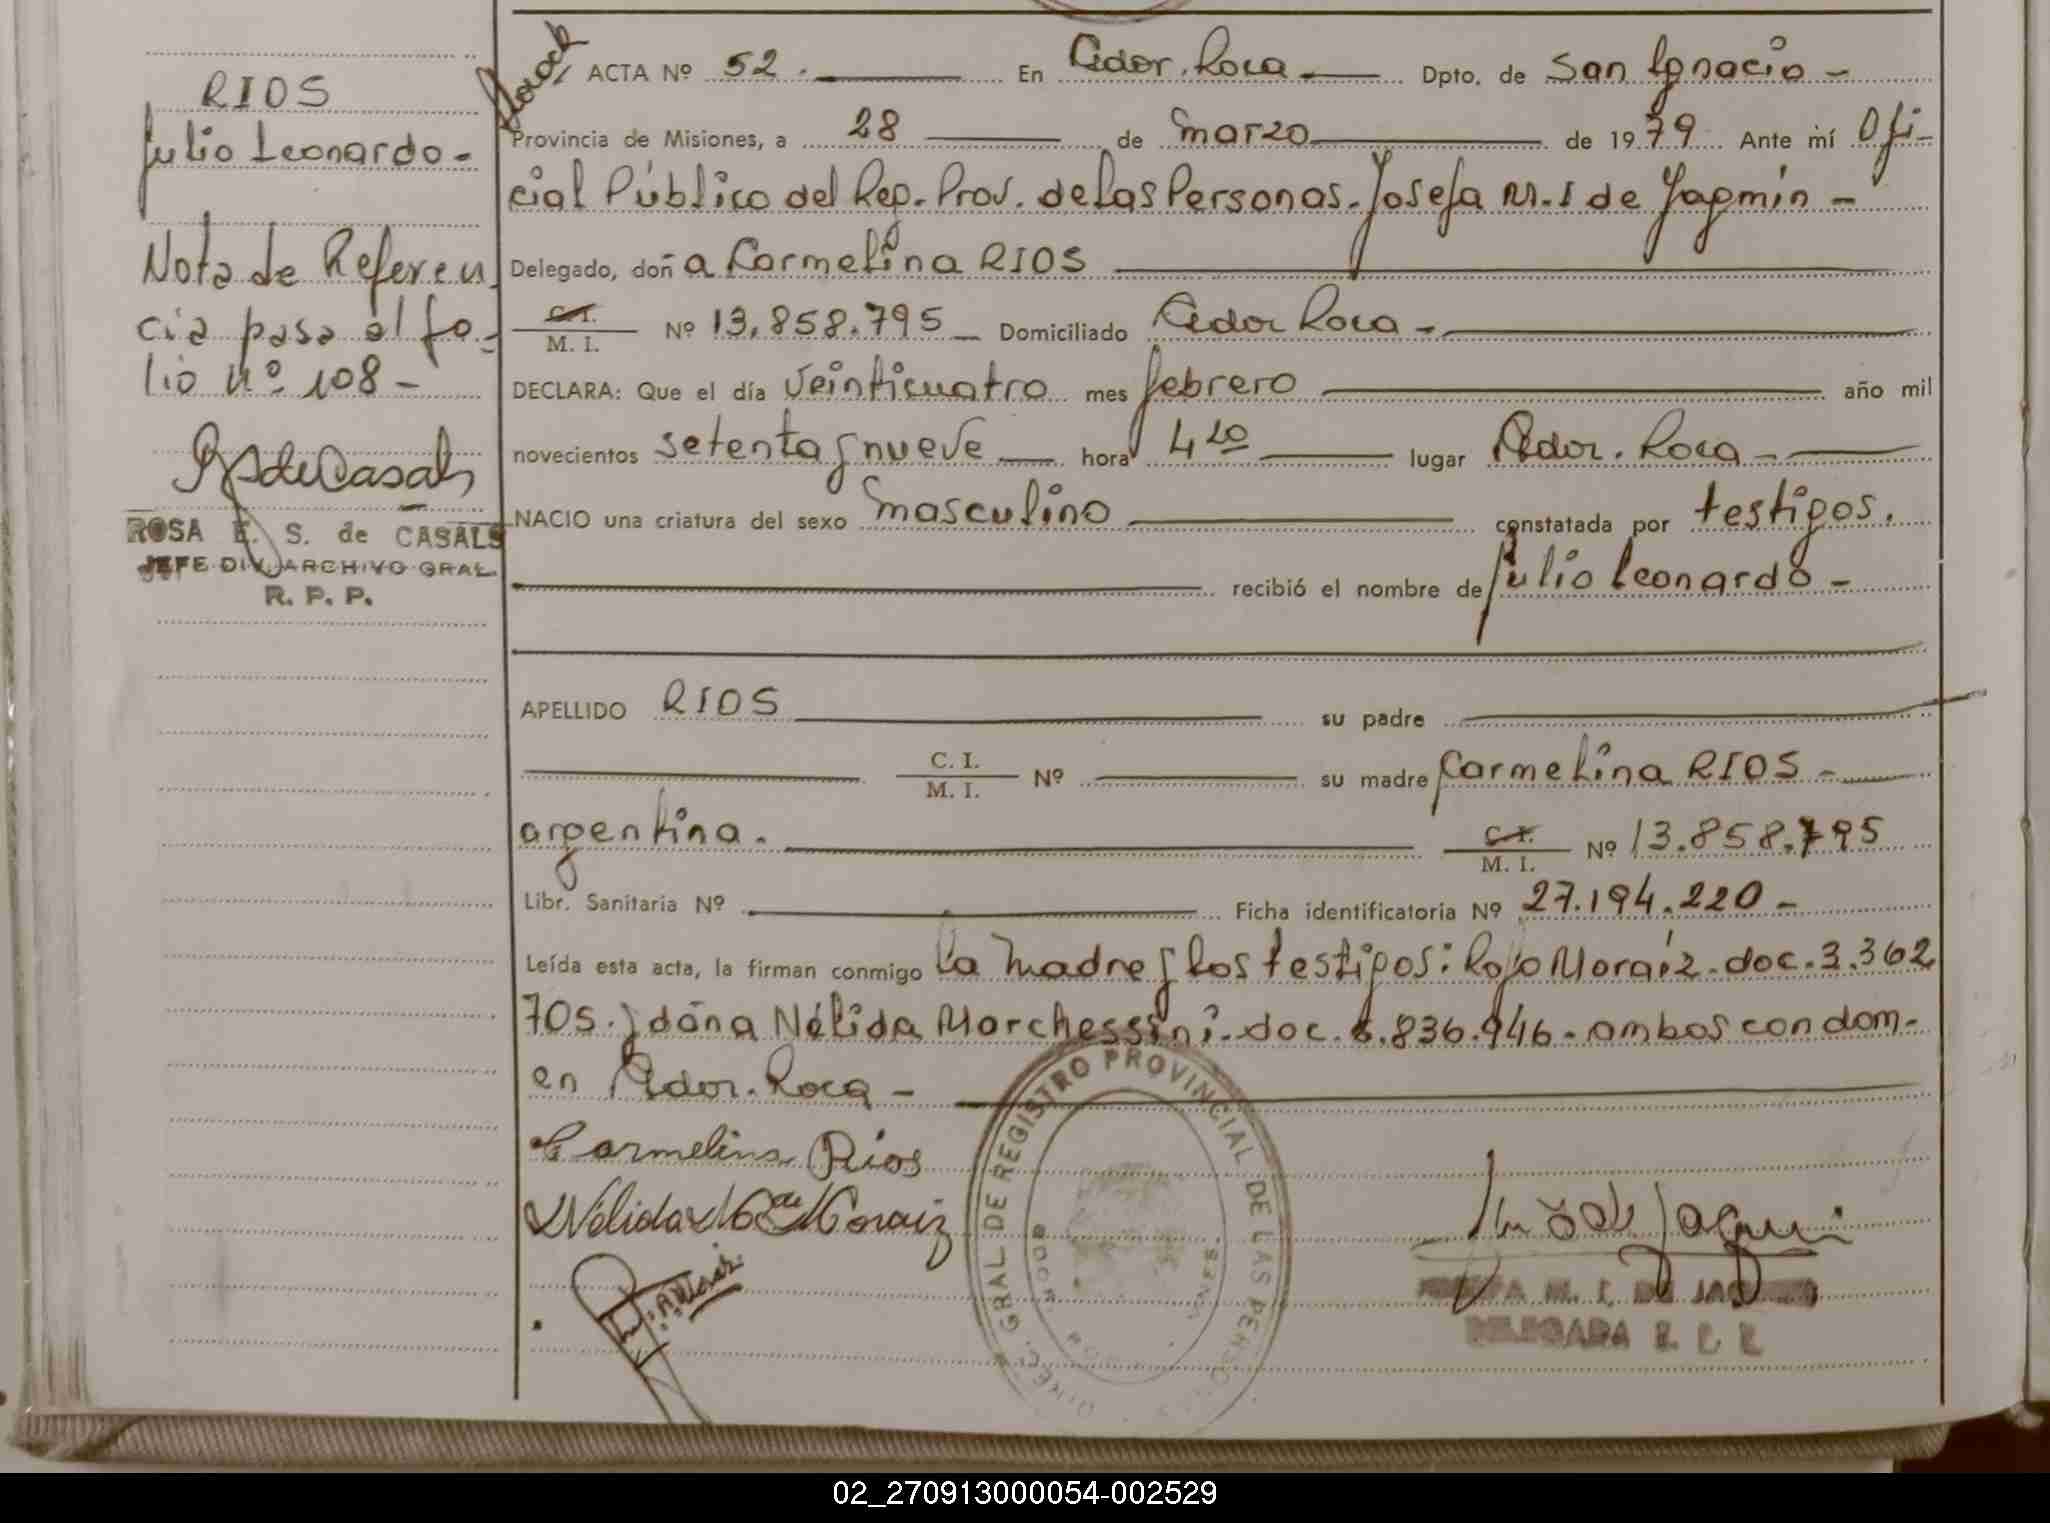 RIOS
Julio Leonardo-
Nota de Referen
cia pasa al fo-
lio nº 108-
ROSA E. S. de CASALS
JEFE DIV. ARCHIVO GRAL.
R. P. P.
ACTA Nº 52. En Gdor. Roca Dpto. de San Ignacio-
Provincia de Misiones, a 28 de marzo de 1979 Ante mí Ofi-
cial Público del Rep. Prov. de las Personas. Josefa M. I de Yagmin-
Delegado, doña Carmelina RIOS
C.I. M. I. Nº 13.858.795 Domiciliado Gdor Roca-
DECLARA: Que el día veinticuatro mes febrero año mil
novecientos setenta y nueve hora 4 20 lugar Gdor. Roca-
NACIO una criatura del sexo masculino constatada por testigos.
recibió el nombre de Julio Leonardo-
APELLIDO RIOS su padre
C. I. M. I. Nº su madre Carmelina RIOS-
argentina. C. I. M. I. Nº 13.858.795
Libr. Sanitaria Nº Ficha identificatoria Nº 27.194.220-
Leída esta acta, la firman conmigo la madre y los testigos: Moraiz. doc. 3.362
705. y doña Nélida Marchessini. doc. 6.836.946. ambos con dom-
en Gdor. Roca-
Carmelina Rios
Nélida Moraiz
DIREC. GRAL DE REGISTRO PROVINCIAL DE LAS PERSO
GDOR. ROCA
JOSEFA M. I. DE JAGMIN
DELEGADA
02_270913000054-002529